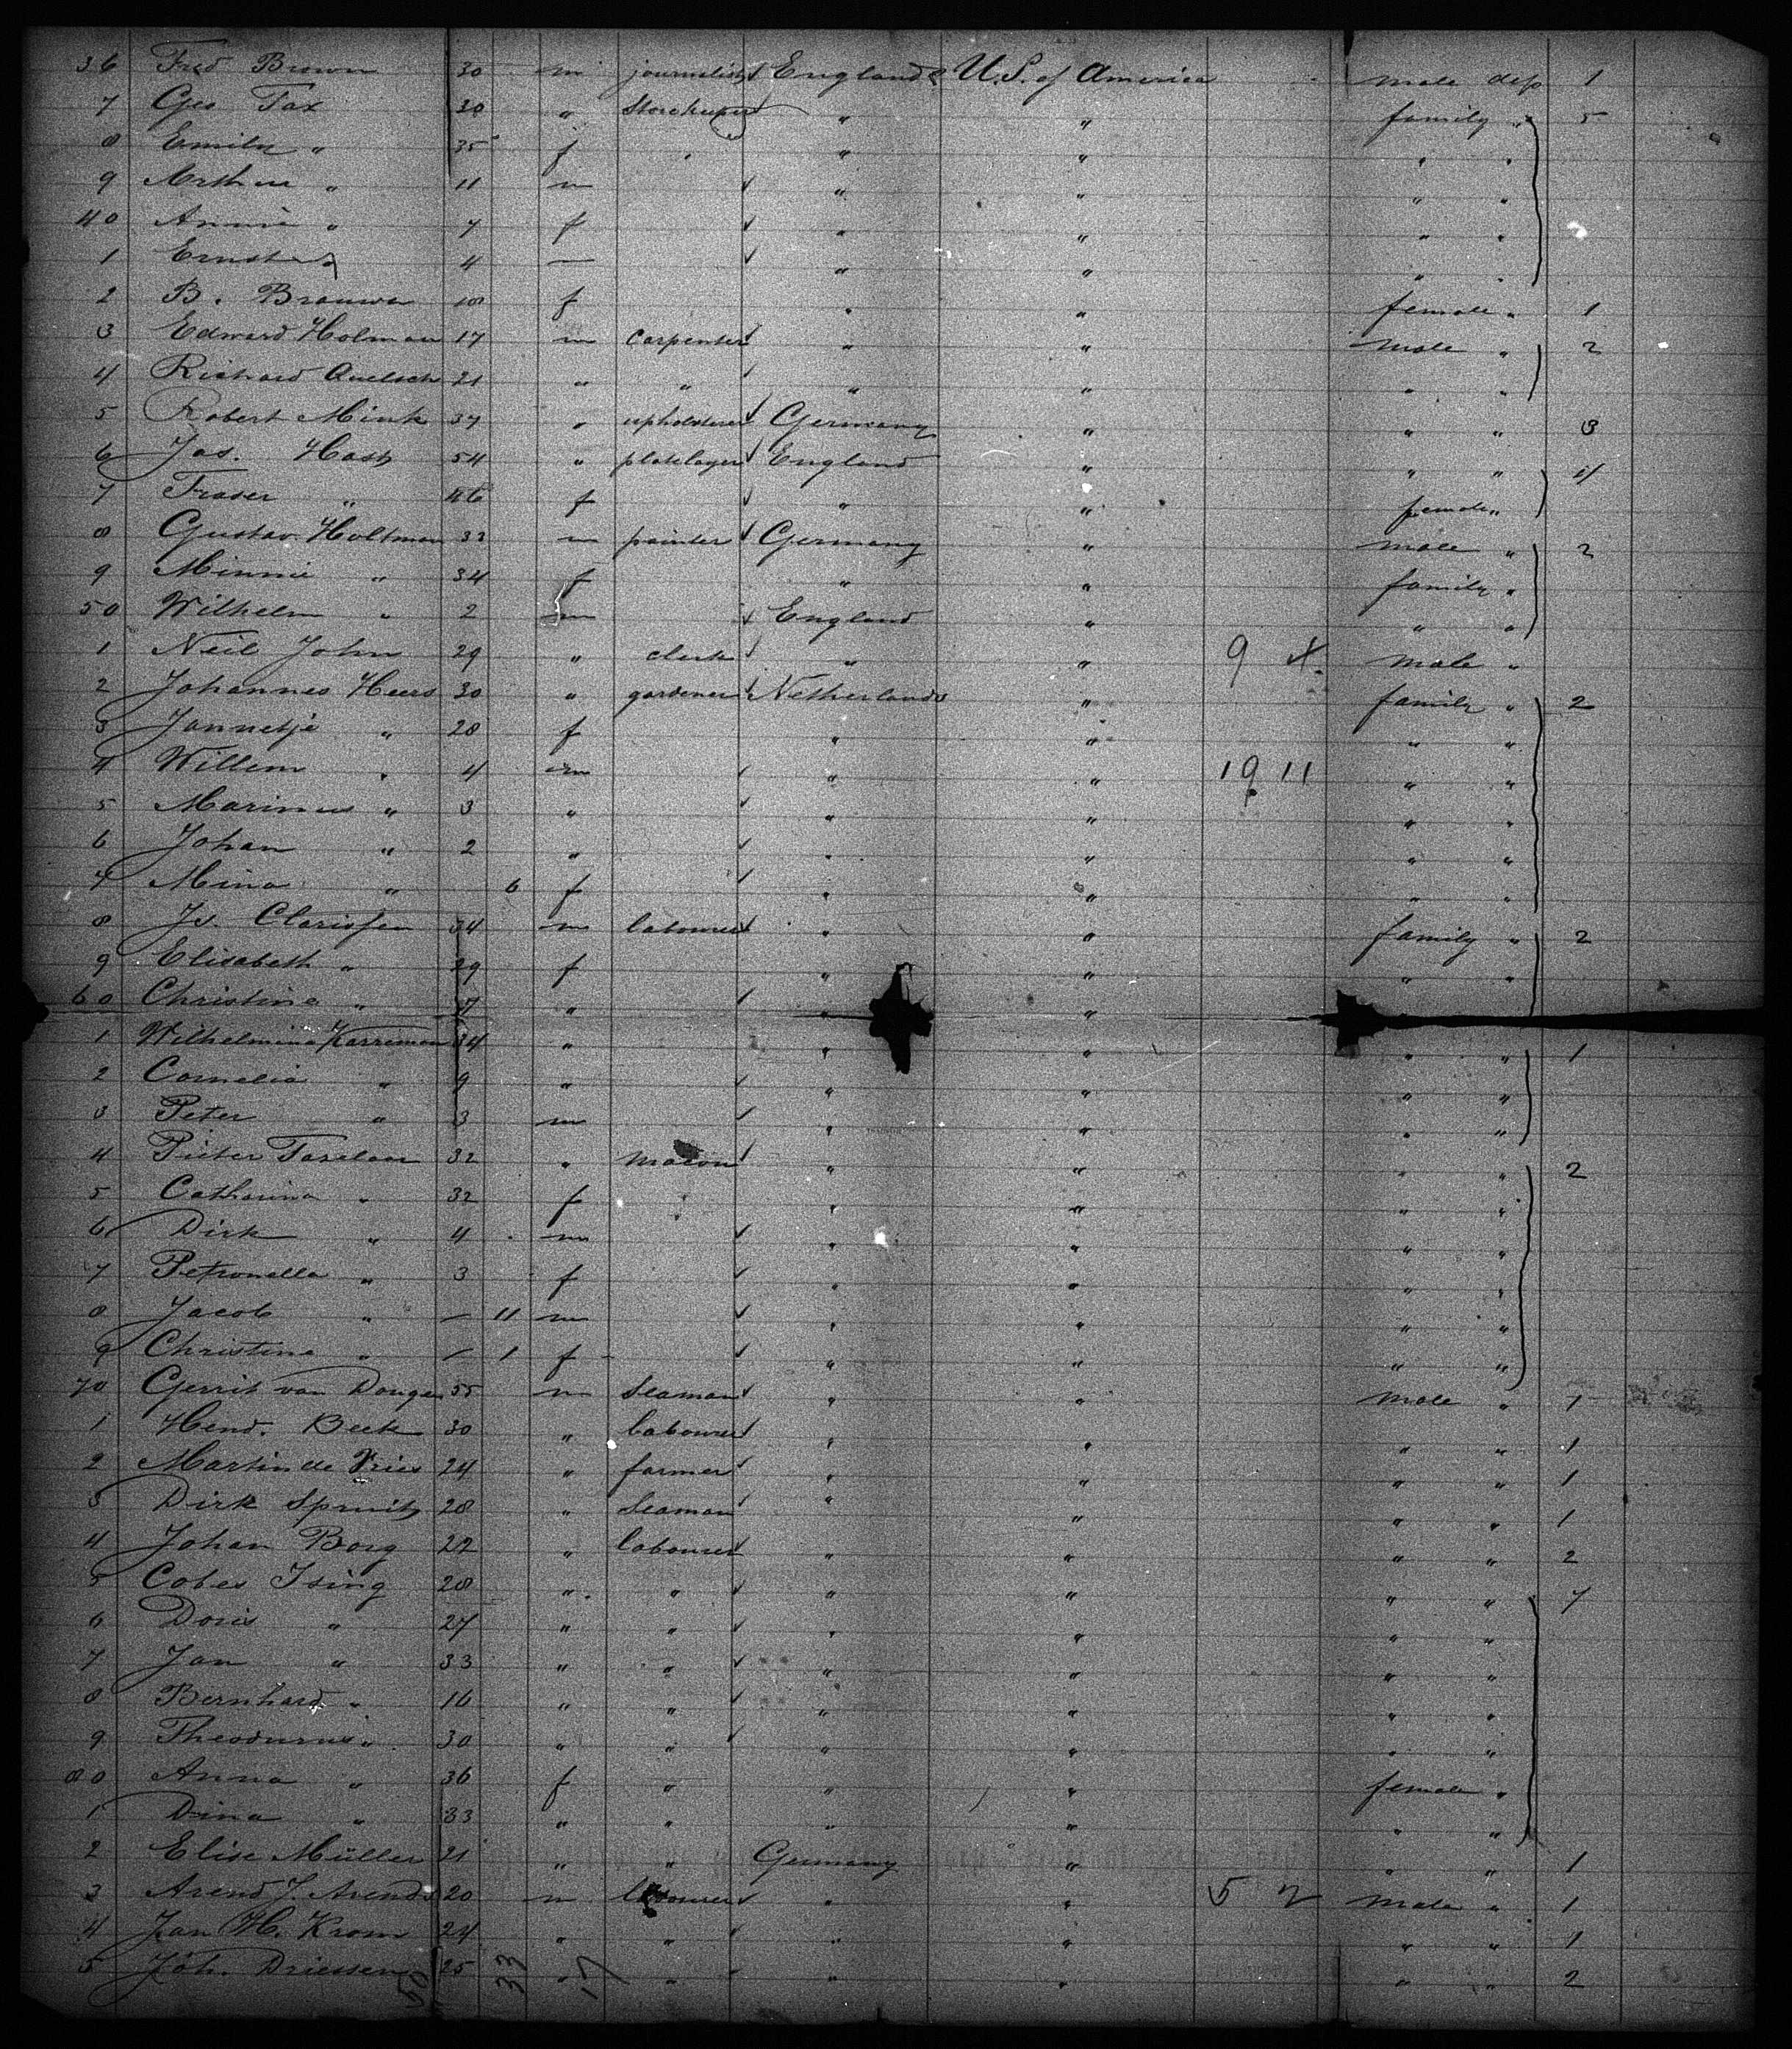 36 Fred Brown 30 m journalist England U.S. of America male dep 1
7 Geo Tax 30 " Storekeeper " " family " 5
8 Emily " 35 f " " " " "
9 Arthur " 11 m " " " "
40 Annie " 7 f " " " "
1 Ernst " 4 — " " " "
2 B. Brouwer 18 f " " female " 1
3 Edward Holman 17 m carpenter " " male " 2
4 Richard Quelsch 21 " " " " " "
5 Robert Mink 37 " upholsterer Germany " " " 3
6 Jas. Hast 54 " platelayer England " " "
7 Fraser " 46 f " " female "
8 Gustav Holtman 33 m painter Germany " male " 2
9 Minnie " 34 f " " family "
50 Wilhelm " 2 m England " " "
1 Neil John 29 " clerk " " 9 male "
2 Johannes Heers 30 " gardener Netherlands " family " 2
3 Jannetje " 28 f " " " "
4 Willem " 4 m " " 19 11 " "
5 Marinus " 3 " " " " "
6 Johan " 2 " " " " "
7 Mina " 6 f " " " "
8 Js. Clarissen 34 m labourer " " family " 2
9 Elisabeth " 29 f " " " "
60 Christina " 7 " " " "
1 Wilhelmina Karreman 34 " " " " " 1
2 Cornelia " 9 " " " " "
3 Peter " 3 m " " " "
4 Pieter Taselaar 32 " mason " " " " 2
5 Catharina " 32 f " " " "
6 Dirk " 4 m " " " "
7 Petronella " 3 f " " " "
8 Jacob " — 11 m " " " "
9 Christina " — 1 f " " " "
70 Gerrit van Dongen 55 m Seaman " " male " 1
1 Hend. Beek 30 " labourer " " " " 1
2 Martin de Vries 24 " farmer " " " " 1
3 Dirk Spruit 28 " Seaman " " " " 1
4 Johan Borg 22 " labourer " " " " 2
5 Cobes Ising 28 " " " " " " 7
6 Doris " 27 " " " " " "
7 Jan " 33 " " " " " "
8 Bernhard " 16 " " " " " "
9 Theodurus " 30 " " " " " "
80 Anna " 36 f " " " female "
1 Dina " 33 " " " " " "
2 Elise Müller 21 " " Germany " " " 1
3 Arend J. Arends 20 m labourer " " 5 2 male " 1
4 Jan H. Krom 24 " " " " " " 1
5 Joh. Driessen 25 " " " " " " 2
50 33 17